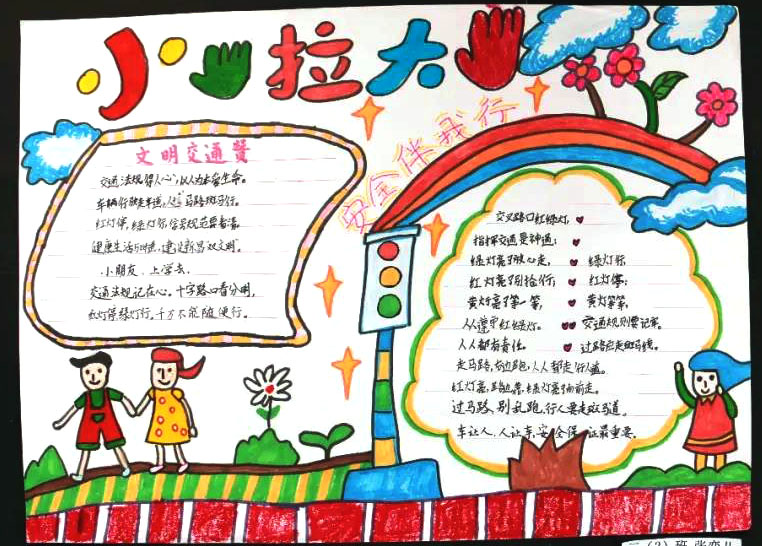 小手拉大手
安全伴我行
文明交通赞
交通法规得人心,以人为本留生命。
车辆行驶走车道,人走马路斑马行。
红灯停,绿灯行,信号规范要看清。
健康生活
小朋友、上学去,
交通法规记在心。十字路口看分明,
红灯停绿灯行,千万不能随便行。
交叉路口红绿灯,
指挥交通是神通;
绿灯亮了放心走, 绿灯行
红灯亮了别抢行; 红灯停;
黄灯亮了等一等, 黄灯等等;
人人遵守红绿灯。 交通规则要记牢。
人人都有责任。 过路应走斑马线。
走马路,右边跑,人人都走人行道。
红灯亮,路边等,绿灯亮了向前走。
过马路,别乱跑,行人要走
车让人,人让车,安全保证最重要。